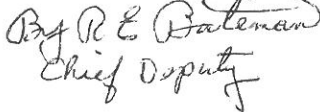 By R E Bateman
Chief Deputy